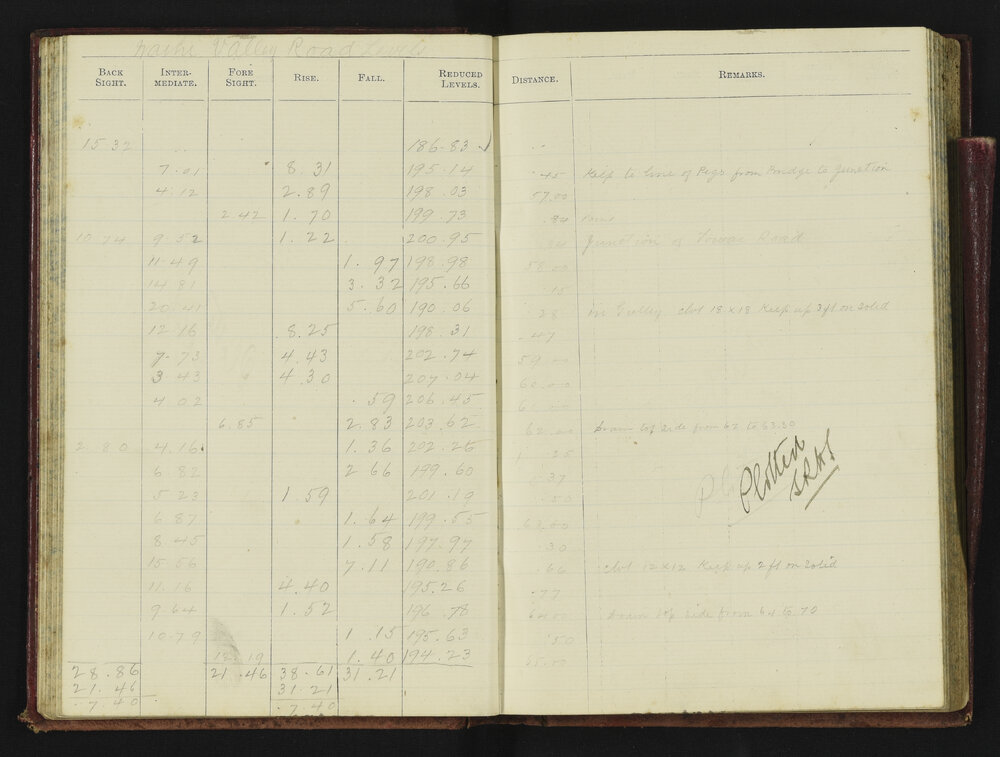 Valley Road Levels
BACK SIGHT. INTER-MEDIATE. FORE SIGHT. RISE. FALL. REDUCED LEVELS. DISTANCE. REMARKS.
15.32 186.83
7.01 8.31 195.14 .45 Keep to line of Pegs from Bridge to Junction
4.12 2.89 198.03 57.00
2.42 1.70 199.73 .84
10.74 9.52 1.22 200.95 Junction of Road
11.49 1.97 198.98 58.00
14.81 3.32 195.66 .15
20.41 5.60 190.06 .28 In Gulley clvt 18 x 18 Keep up 3 ft on Solid
12.16 8.25 198.31 .47
7.73 4.43 202.74 59.00
3.43 4.30 207.04 60.00
4.02 .59 206.45 61.00
6.85 2.83 203.62 62.00 Drain top side from 62 to 63.30
2.80 4.16 1.36 202.26 .25
6.82 2.66 199.60 .37
5.23 1.59 201.19 .50
6.87 1.64 199.55 63.00
8.45 1.58 197.97 .30
15.56 7.11 190.86 .66 clvt 12 x 12 Keep up 2 ft on Solid
11.16 4.40 195.26 .77
9.64 1.52 196.78 64.00 Drain top side from 64 to 70
10.79 1.15 195.63 .50
12.19 1.40 194.23 65.00
28.86 21.46 38.61 31.21
21.46 31.21
7.40 7.40
Plotted